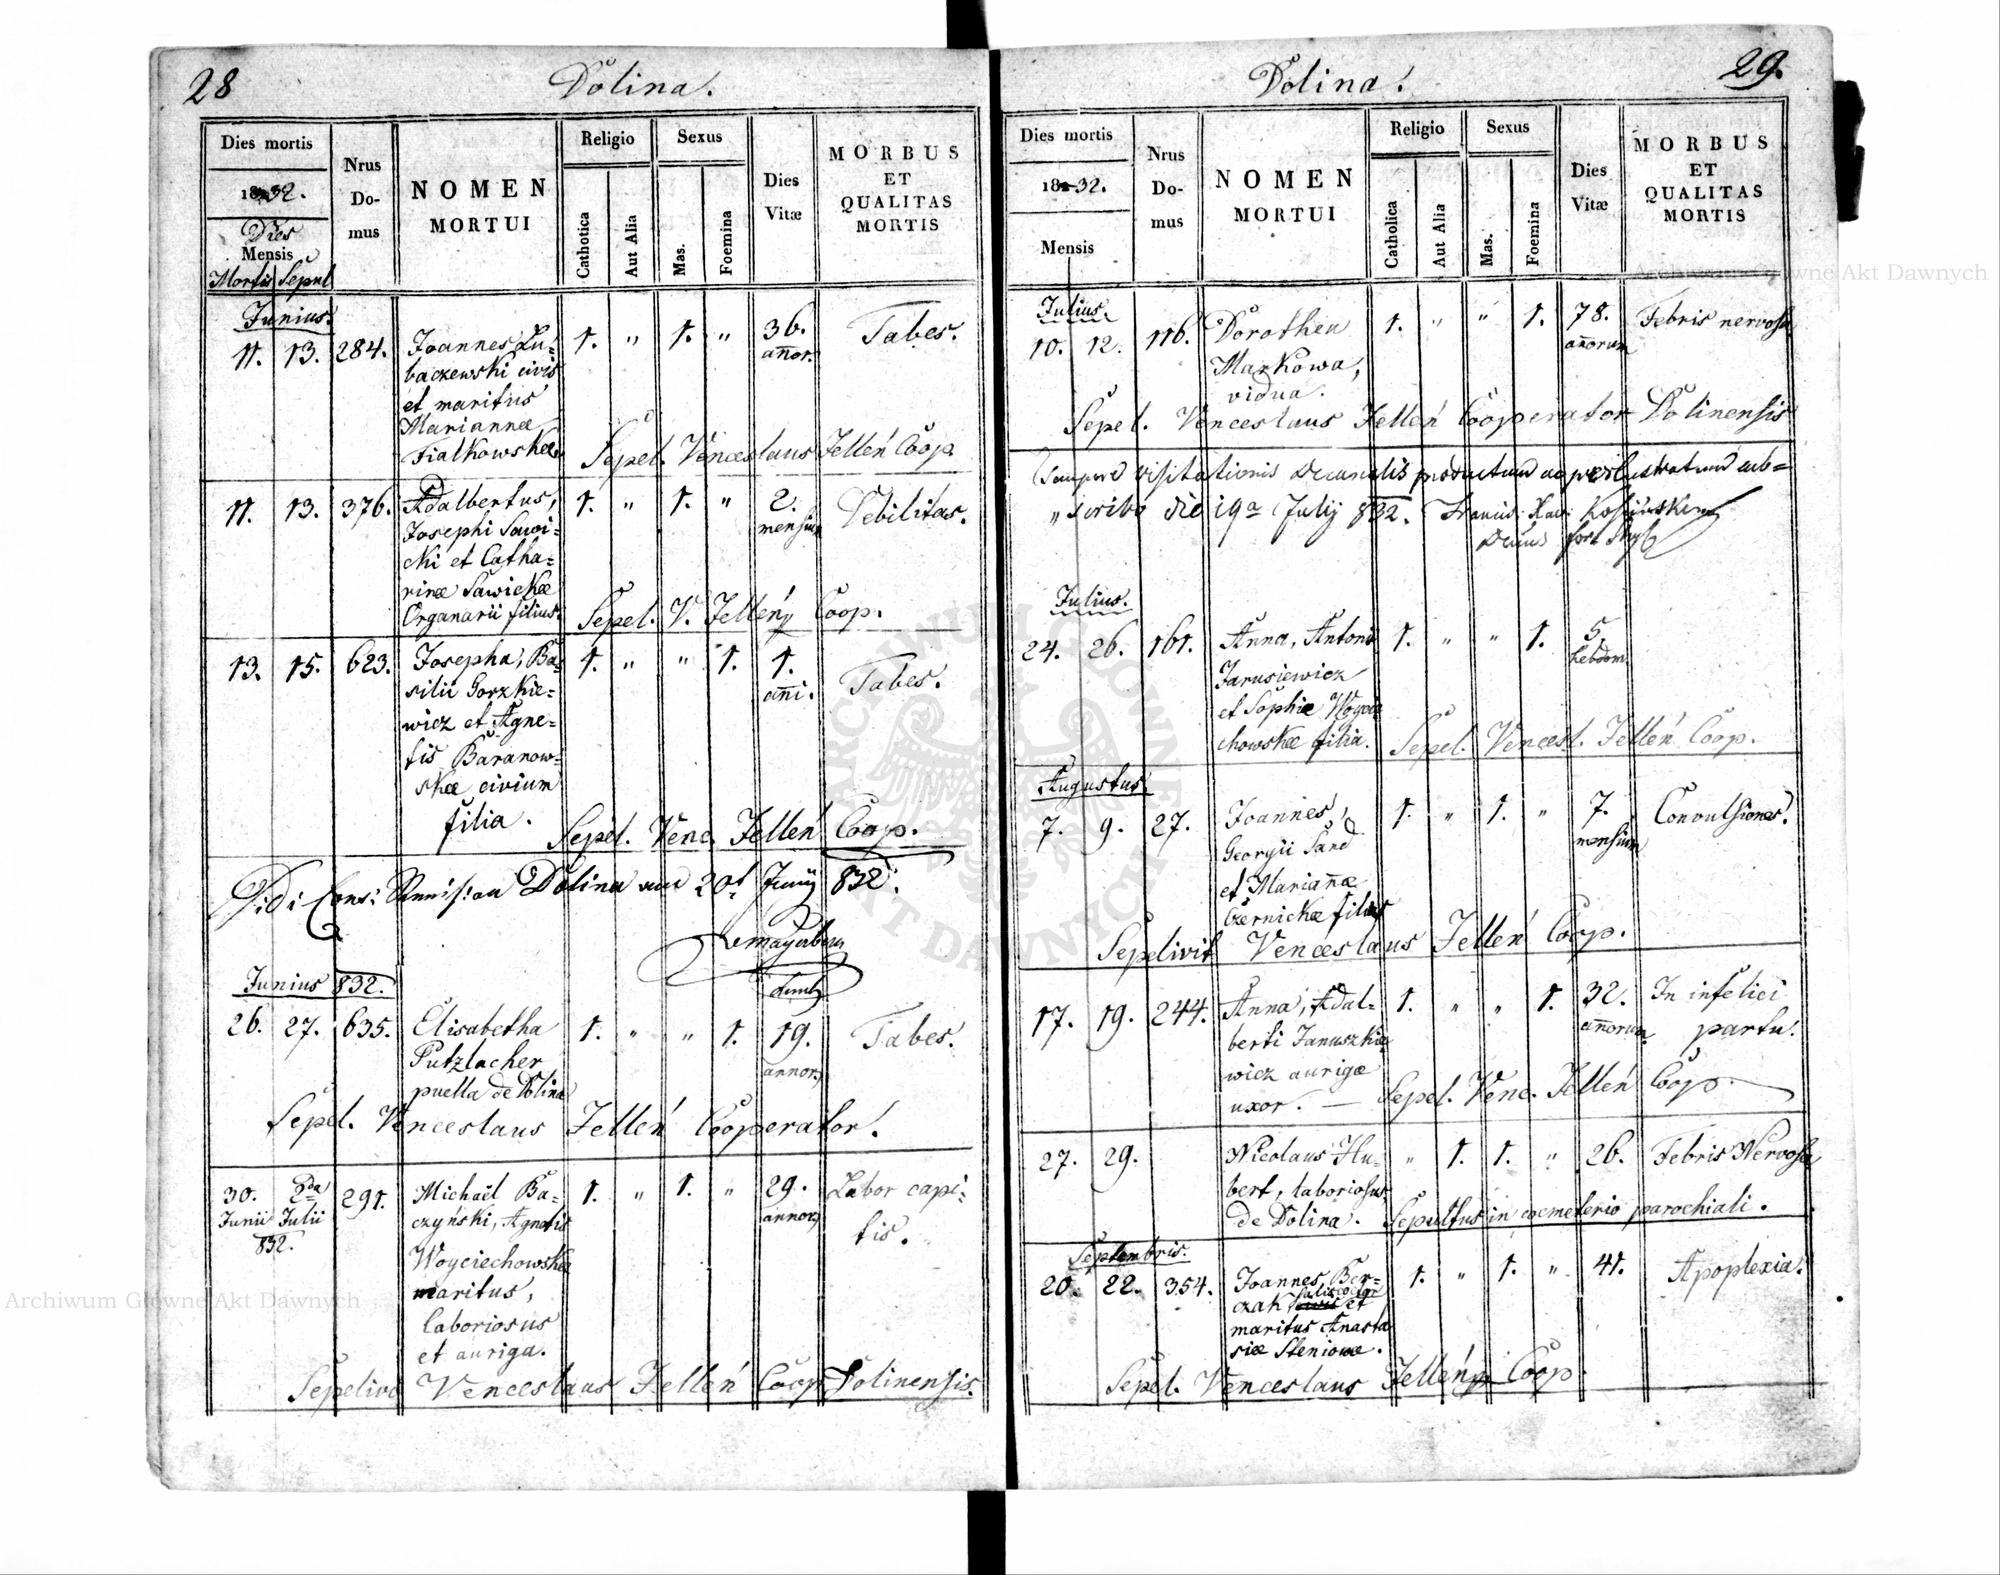 28
Dolina.
Dies mortis
1832.
Dies
Mensis
Mortis Sepul
Nrus
Do-
mus
NOMEN
MORTUI
Religio
Cathotica
Aut Alia
Sexus
Mas.
Foemina
Dies
Vitæ
MORBUS
ET
QUALITAS
MORTIS
Junius.
11. 13. 284. Joannes Lu= 1. " 1. " 36. Tabes.
baczewski civis annor.
et maritus
Mariannæ
Fialkowskæ.
Sepel. Venceslaus Jelleń Coop
11. 13. 376. Adalbertus, 1. " 1. " 2. Debilitas.
Josephi Sawi= mensium
cki et Catha=
rinæ Sawickæ
Organarii filius.
Sepel. V. Jelleńy Coop.
13. 15. 623. Josepha, Ba= 1. " " 1. 1. Tabes.
silii Gorzkie= anni.
wicz et Agne=
tis Baranow=
skæ civium
filia.
Sepel. Vence. Jelleń Coop.
Vidi Dolina 20t Juny 832.
Junius 832.
26. 27. 635. Elisabetha 1. " " 1. 19. Tabes.
Putzlacher annor.
puella de Dolina
Sepel. Venceslaus Jelleń Cooperator.
30. 2da 291. Michaël Ba= 1. " 1. " 29. Labor capi=
Junii Julii czyński, Agnetis annor. tis.
832.
Woyciechowskæ
maritus,
laboriosus
et auriga.
Sepelivi Venceslaus Jelleń Coop Dolinensis.
29.
Dolina.
Dies mortis
1832.
Mensis
Nrus
Do-
mus
NOMEN
MORTUI
Religio
Catholica
Aut Alia
Sexus
Mas.
Foemina
Dies
Vitæ
MORBUS
ET
QUALITAS
MORTIS
Julius.
10. 12. 116. Dorothea 1. " " 1. 78. Febris nervosa
Markowa, annorum
vidua.
Sepel. Venceslaus Jelleń Cooperator Dolinensis
Tempore visitationis Decanalis productum ac perlustratum sub=
"scribo die 19a July 832.
Julius.
24. 26. 161. Anna, Antonii 1. " " 1. 5.
Jarusiewicz hebdom.
et Sophiæ Woycie
chowskæ filia.
Sepel. Vencesl. Jelleń Coop.
Augustus
7. 9. 27. Joannes, 1. " 1. " 7. Convulsiones.
Georgii Sand mensium
et Mariannæ
Czernickæ filius
Sepelivit Venceslaus Jelleń Coop.
17. 19. 244. Anna, Adal= 1. " " 1. 32. In infelici
berti Januszkie annorum partu.
wicz aurigæ
uxor. —
Sepel. Venc. Jelleń Coop.
27. 29. Nicolaus Hu= " 1. 1. " 26. Febris Nervosa
bert, laboriosus
de Dolina.
Sepultus in coemeterio parochiali.
Septembris.
20. 22. 354. Joannes Ber= 1. " 1. " 41. Apoplexia.
czak et
maritus Anasta
siæ Steniowæ.
Sepel. Venceslaus Jelleńy Coop.
Archiwum Główne Akt Dawnych
Archiwum Główne Akt Dawnych
ARCHIWUM GŁÓWNE AKT DAWNYCH